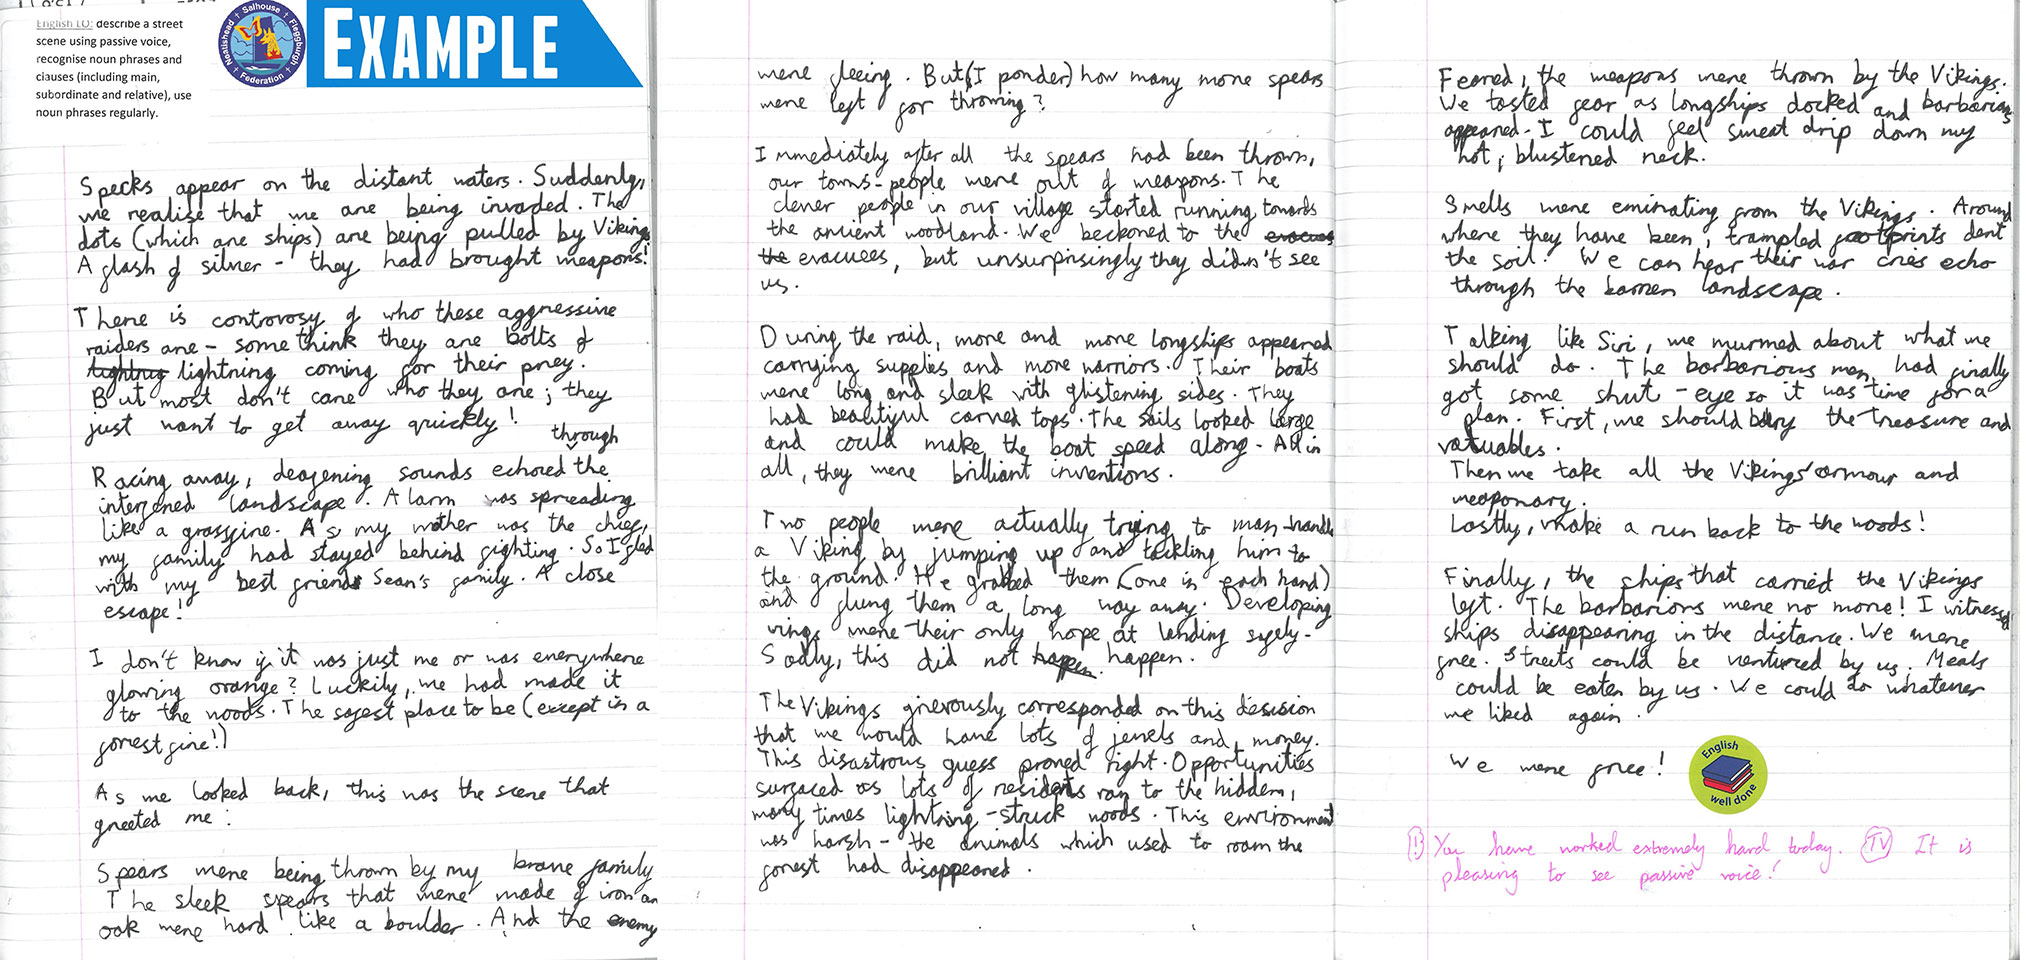 English LO: describe a street
scene using passive voice,
recognise noun phrases and
clauses (including main,
subordinate and relative), use
noun phrases regularly.
Neatishead † Salhouse † Fleggburgh
Federation
EXAMPLE
Specks appear on the distant waters. Suddenly,
we realise that we are being invaded. The
dots (which are ships) are being pulled by Vikings
A flash of silver - they had brought weapons!
There is controvosy of who these aggressive
raiders are - some think they are bolts of
lightning coming for their prey.
But most don't care who they are; they
just want to get away quickly!
Racing away, deafening sounds echored through the
interfened landscape. Alarm was spreading
like a grassfire. As my mother was the chief,
my family had stayed behind fighting. So I fled
with my best friends Sean's family. A close
escape!
I don't know if it was just me or was everywhere
glowing orange? Luckily, we had made it
to the woods. The safest place to be (except in a
forrest fire!)
As we looked back, this was the scene that
greeted me:
Spears were being thrown by my brave family
The sleek spears that were made of iron an
oak were hard like a boulder. And the enemy
were fleeing. But (I ponder) how many more spears
were left for throwing?
Immediately after all the spears had been thrown,
our towns-people were out of weapons. The
clever people in our village started running towards
the ancient woodland. We beckoned to the
the evacuees, but unsurprisingly they didn't see
us.
During the raid, more and more longships appeared
carrying supplies and more warriors. Their boats
were long and sleek with glistening sides. They
had beautiful carved tops. The sails looked large
and could make the boat speed along. All in
all, they were brilliant inventions.
Two people were actually trying to man-handle
a Viking by jumping up and tackling him to
the ground. He grabbed them (one in each hand)
and flung them a long way away. Developing
wings were their only hope at landing safely.
Sadly, this did not happen.
The Vikings grievously corresponded on this desision
that we would have lots of jewels and money.
This disastrous guess proved right. Opportunities
surfaced as lots of residents ran to the hidden,
many times lightning-struck woods. This environment
was harsh - the animals which used to roam the
forest had disappeared.
Feared, the weapons were thrown by the Vikings.
We tasted fear as longships docked and barbarians
appeared. I could feel sweat drip down my
hot, blustened neck.
Smells were eminating from the Vikings. Around
where they have been, trampled footprints dent
the soil. We can hear their war cries echo
through the barren landscape.
Talking like Siri, we murmed about what we
should do. The barbarious men had finally
got some shut-eye so it was time for a
plan. First, we should bury the treasure and
valuables.
Then we take all the Vikings' armour and
weaponary.
Lastly, make a run back to the woods!
Finally, the ships that carried the Vikings
left. The barbarions were no more! I witnessed
ships disappearing in the distance. We were
free. Streets could be ventured by us. Meals
could be eaten by us. We could do whatever
we liked again.
We were free!
English
well done
! You have worked extremely hard today. TV It is
pleasing to see passive voice!